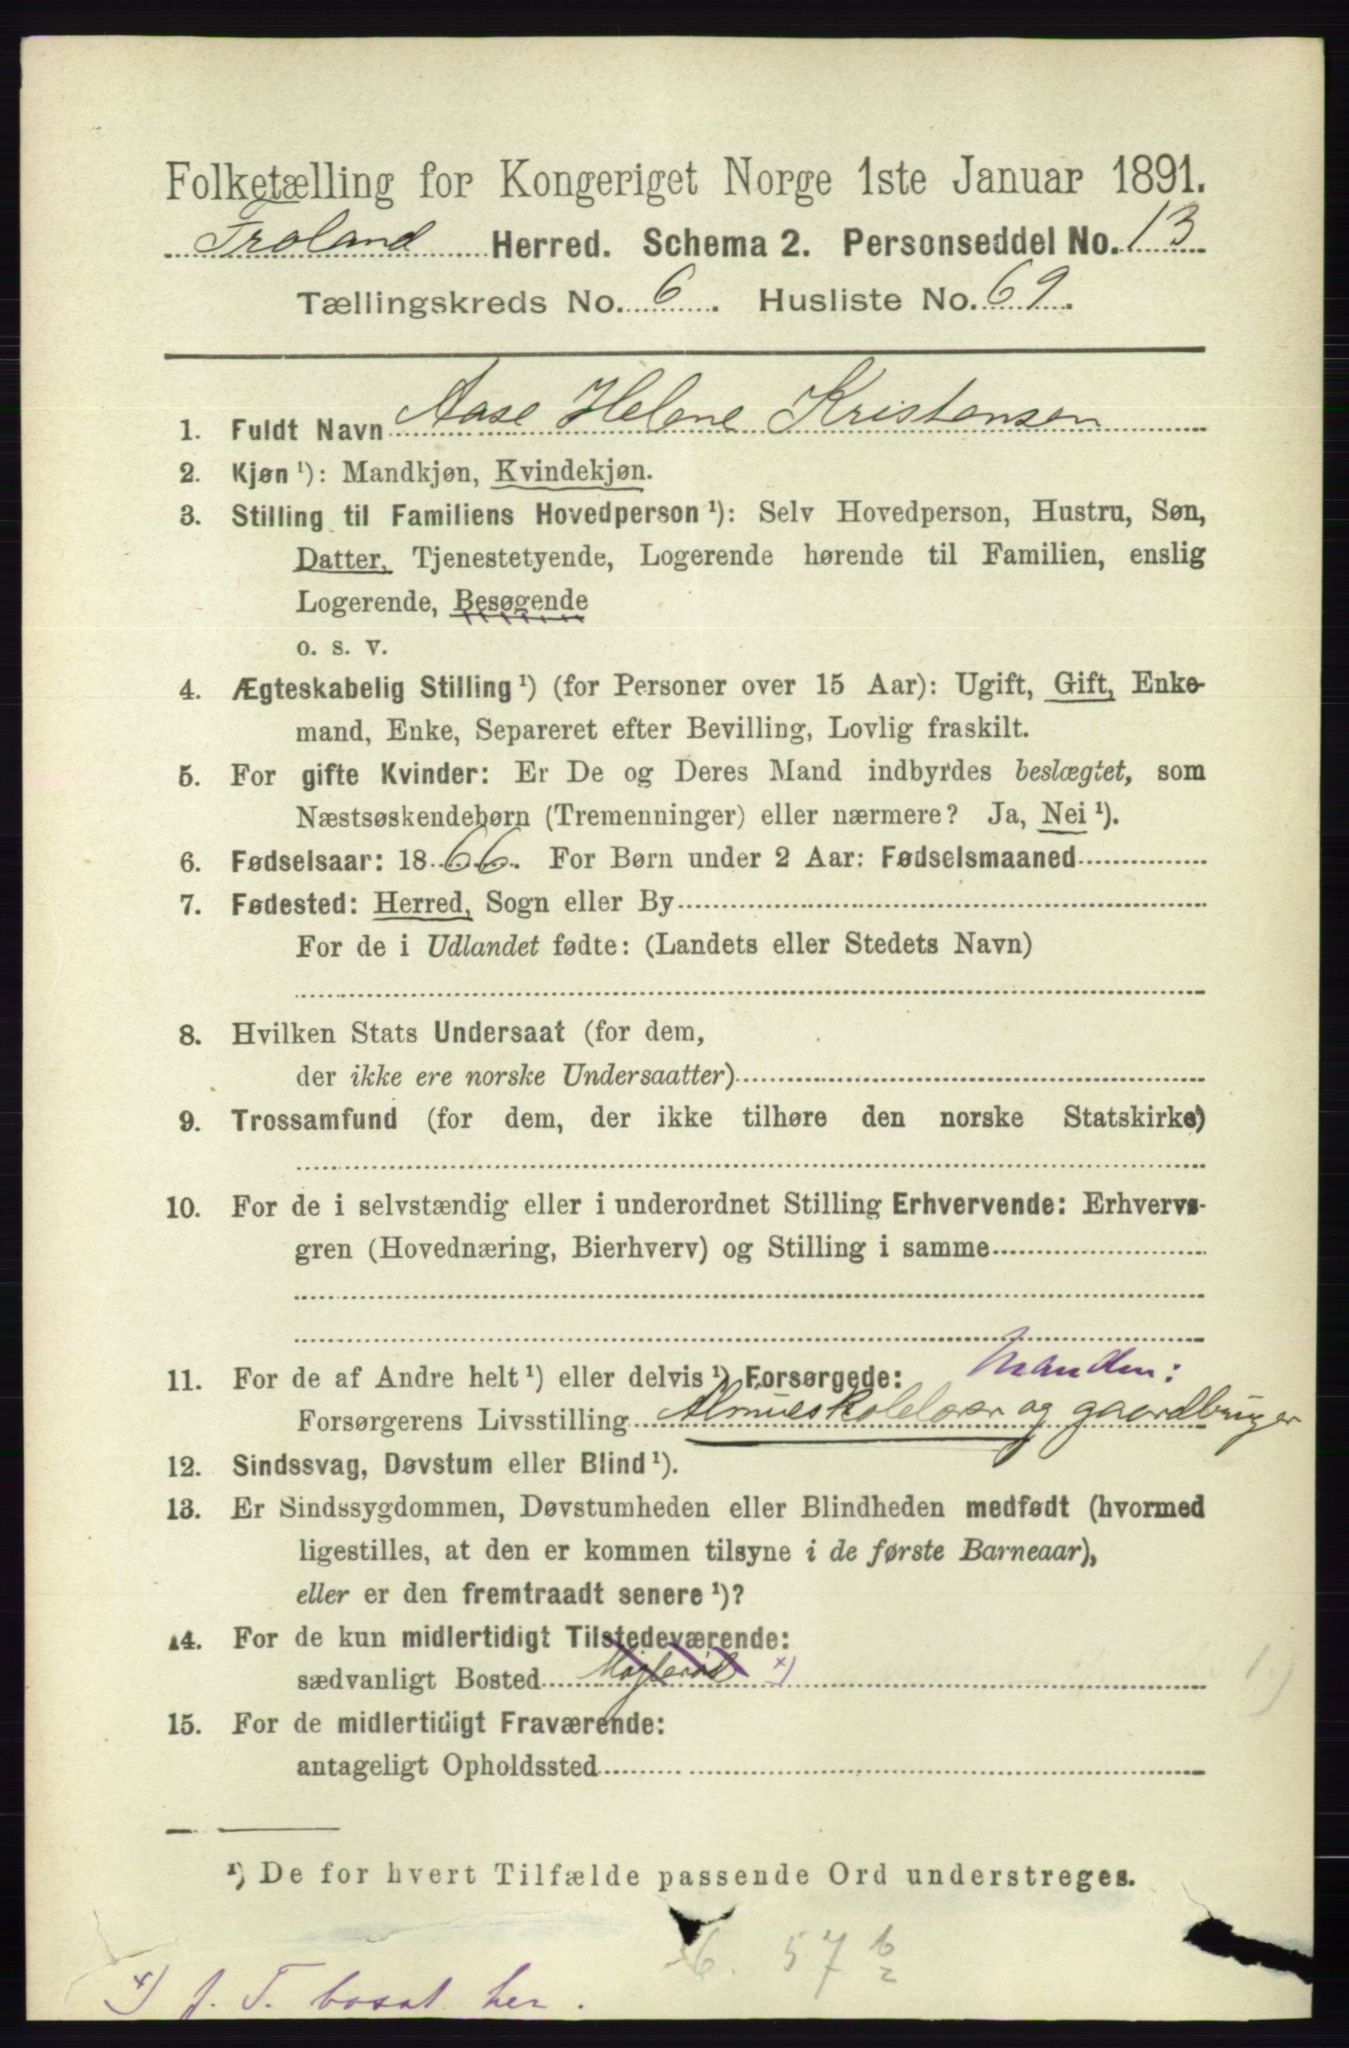 Folketælling for Kongeriget Norge 1ste Januar 1891.
Froland Herred. Schema 2. Personseddel No. 13
Tællingskreds No. 6. Husliste No. 69.
1. Fuldt Navn Aase Helene Kristensen
2. Kjøn ¹): Mandkjøn, Kvindekjøn.
3. Stilling til Familiens Hovedperson ¹): Selv Hovedperson, Hustru, Søn,
Datter, Tjenestetyende, Logerende hørende til Familien, enslig
Logerende, Besøgende
o. s. v.
4. Ægteskabelig Stilling ¹) (for Personer over 15 Aar): Ugift, Gift, Enke-
mand, Enke, Separeret efter Bevilling, Lovlig fraskilt.
5. For gifte Kvinder: Er De og Deres Mand indbyrdes beslægtet, som
Næstsøskendebørn (Tremenninger) eller nærmere? Ja, Nei ¹).
6. Fødselsaar: 1866. For Børn under 2 Aar: Fødselsmaaned
7. Fødested: Herred, Sogn eller By
For de i Udlandet fødte: (Landets eller Stedets Navn)
8. Hvilken Stats Undersaat (for dem,
der ikke ere norske Undersaatter)
9. Trossamfund (for dem, der ikke tilhøre den norske Statskirke)
10. For de i selvstændig eller i underordnet Stilling Erhvervende: Erhvervs-
gren (Hovednæring, Bierhverv) og Stilling i samme
11. For de af Andre helt ¹) eller delvis ¹) Forsørgede: Manden:
Forsørgerens Livsstilling Almueskolelærer og gaardbruger
12. Sindssvag, Døvstum eller Blind ¹).
13. Er Sindssygdommen, Døvstumheden eller Blindheden medfødt (hvormed
ligestilles, at den er kommen tilsyne i de første Barneaar),
eller er den fremtraadt senere ¹)?
14. For de kun midlertidigt Tilstedeværende:
sædvanligt Bosted x)
15. For de midlertidigt Fraværende:
antageligt Opholdssted
¹) De for hvert Tilfælde passende Ord understreges.
6. 57 b/2
x) f. T. bosat her.